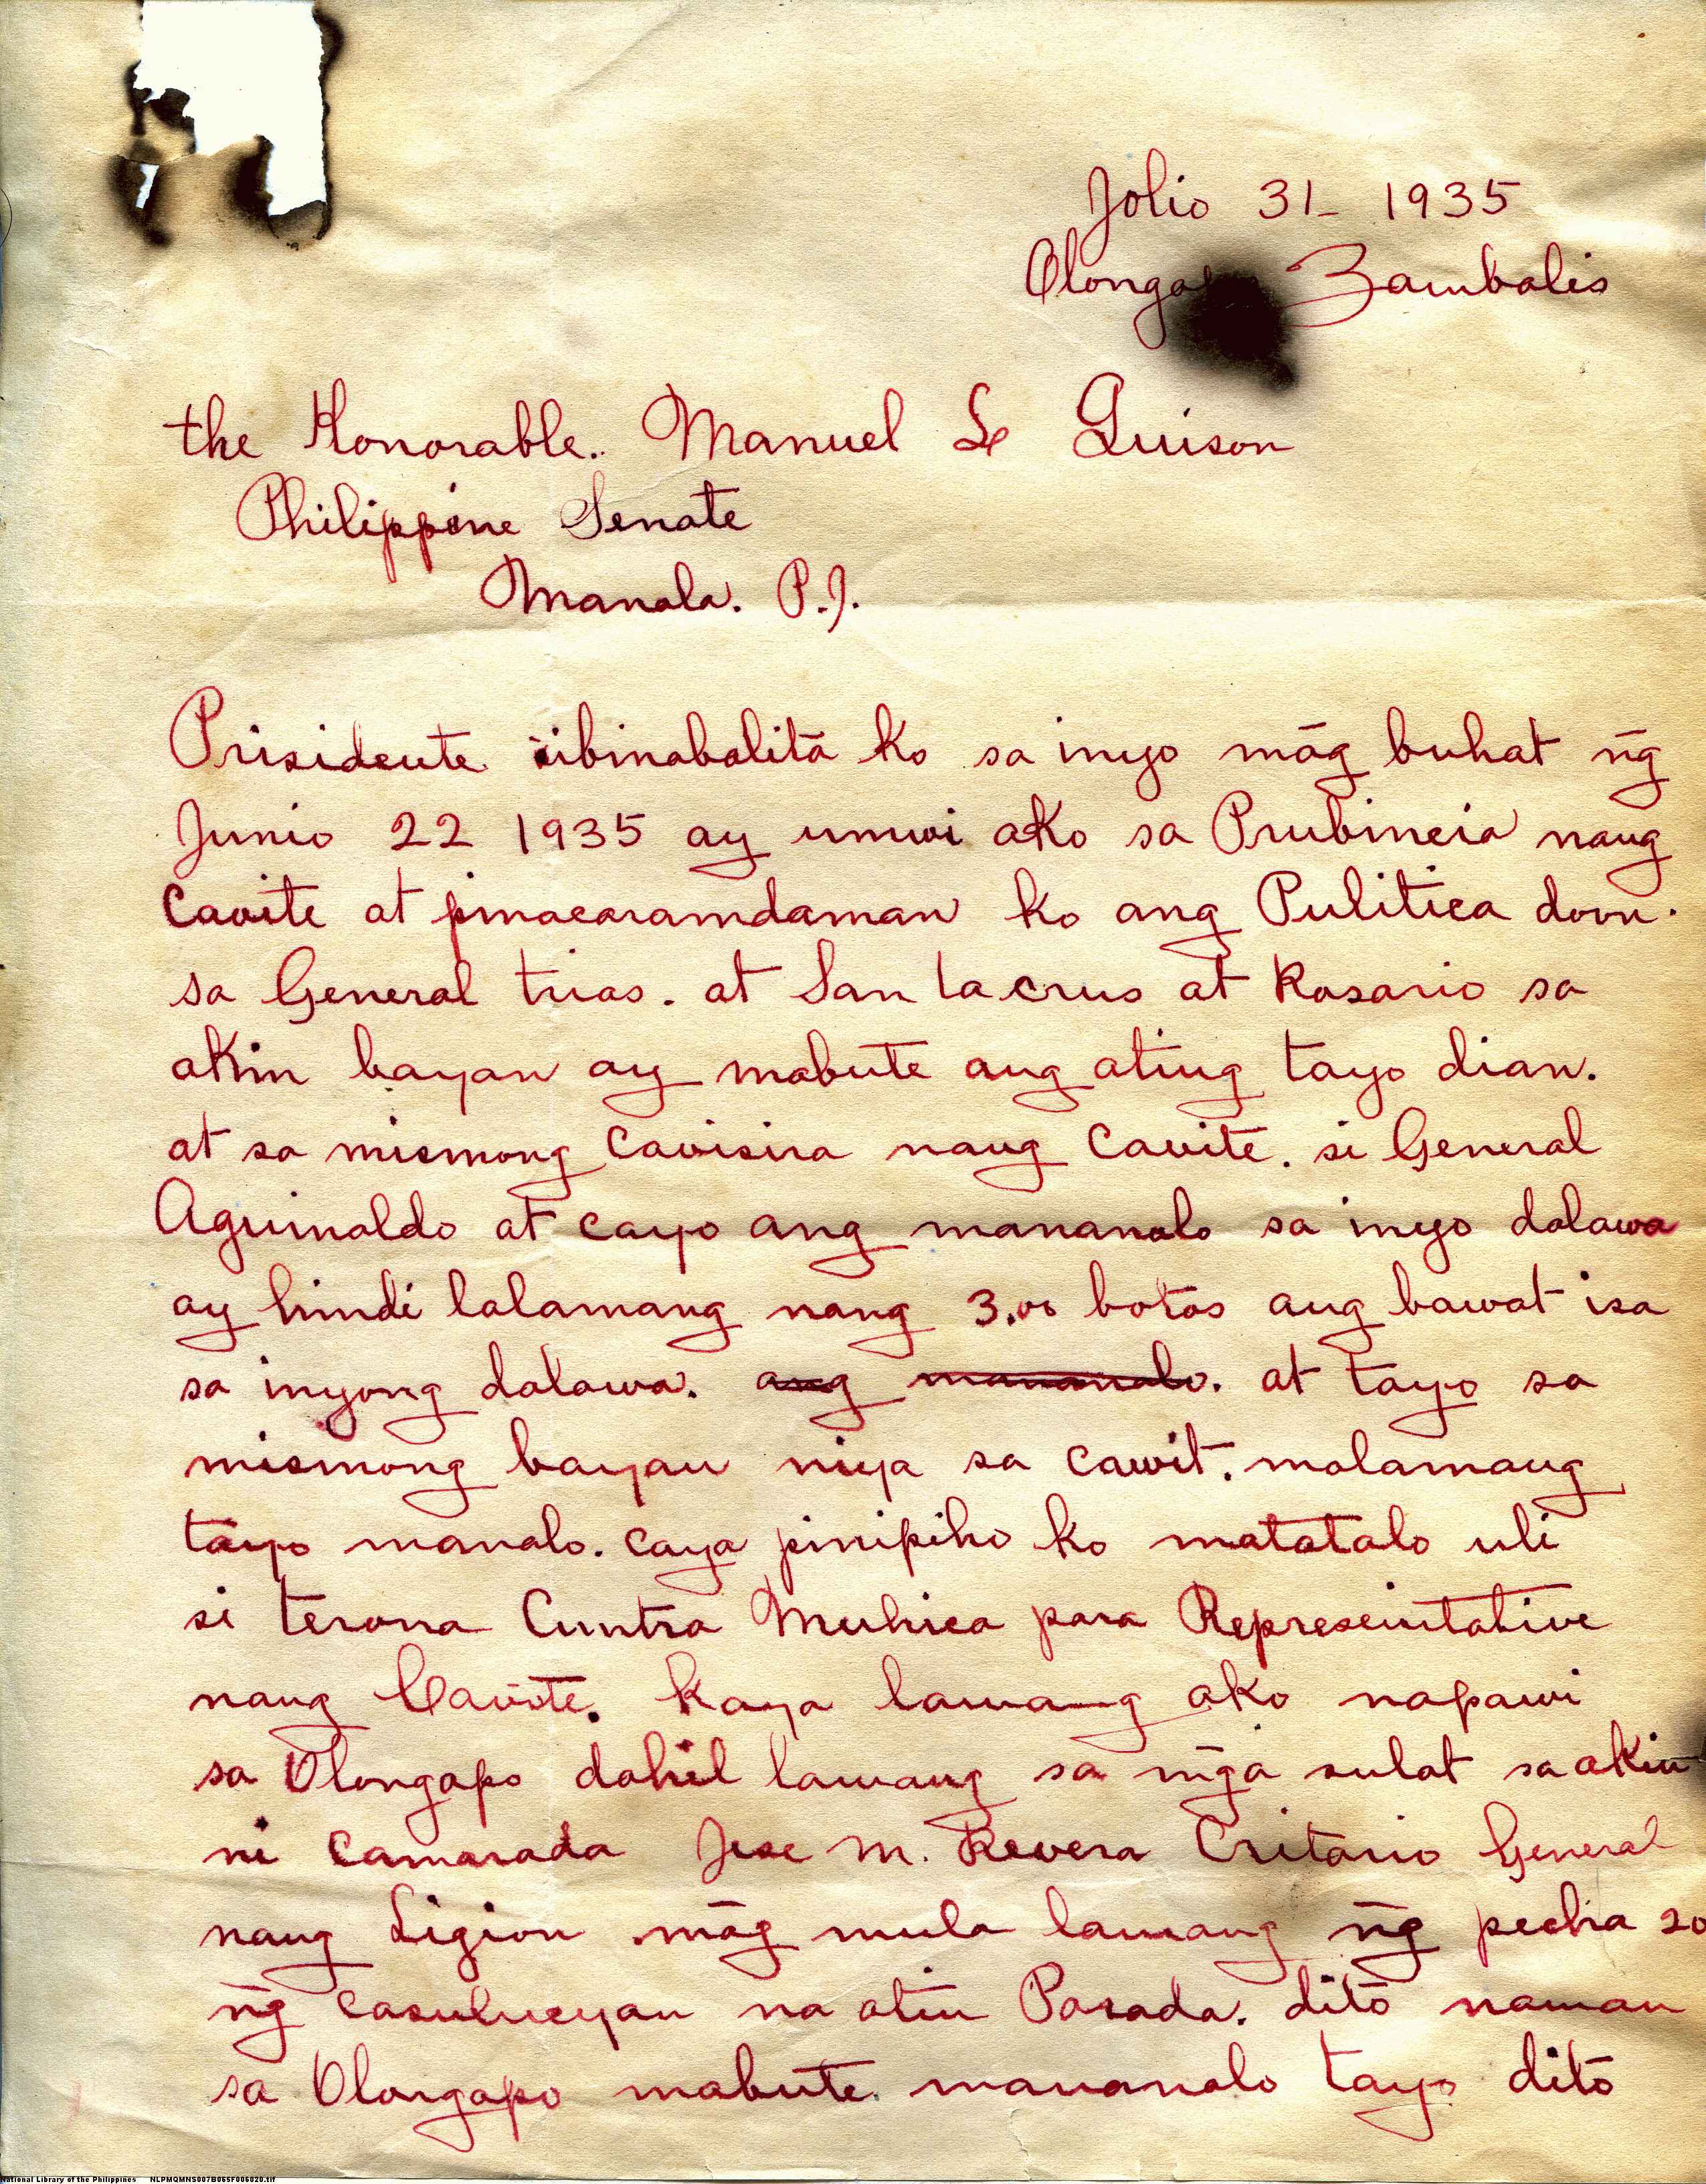 Jolio 31_ 1935
Olonga Zambalis
the Honorable. Manuel L Quison
Philippine Senate
Manala. P.I.
Prisidente iibinabalita ko sa inyo māg buhat n̄g
Junio 22 1935 ay umuwi ako sa Prubincia nang
Cavite at pinacaramdaman ko ang Pulitica doon.
sa General trias. at San ta crus at Rosario sa
akin bayan ay mabute ang ating tayo dian.
at sa mismong Cavisira nang Cavite. si General
Aguinaldo at cayo ang mananalo sa inyo dalawa
ay hindi lalamang nang 3.00 botos ang bawat isa
sa inyong dalawa. ang mananalo. at tayo sa
mismong bayan niya sa cawit. malamang
tayo manalo. caya pinipiho ko matatalo uli
si terona Cuntra Muhica para Represeintative
nang Cavite. Kaya lamang ako napawi
sa Olongapo dahil lamang sa mḡa sulat sa akin
ni Camarada Jose M. Revera Critario General
nang Ligion māg mula lamang n̄g pecha 20
n̄g casulucuyan na atin Parada. ditō naman
sa Olongapo mabute. mananalo tayo ditō
National Library of the Philippines NLPMQMNS007B065F006020.tif